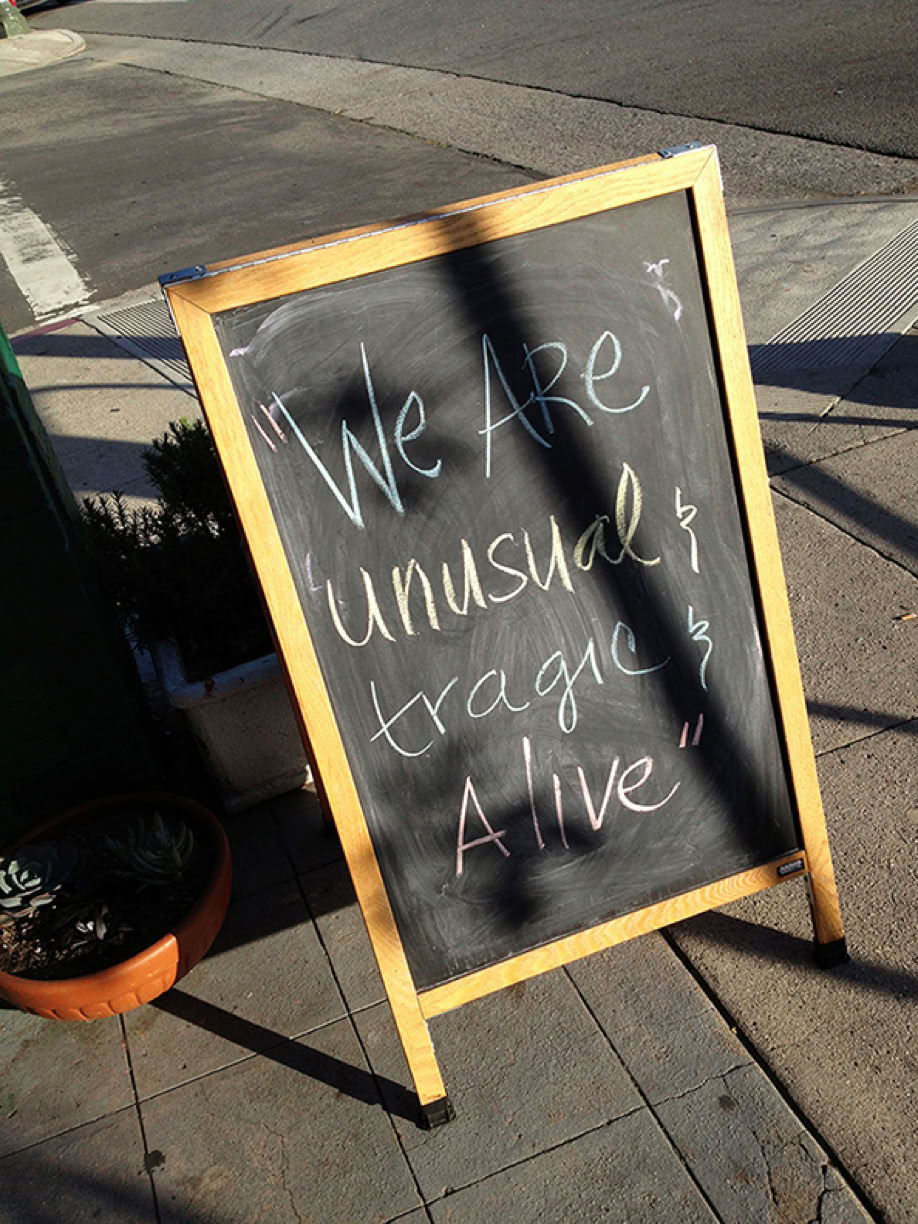 "We ARe
unusual &
tragic &
Alive"